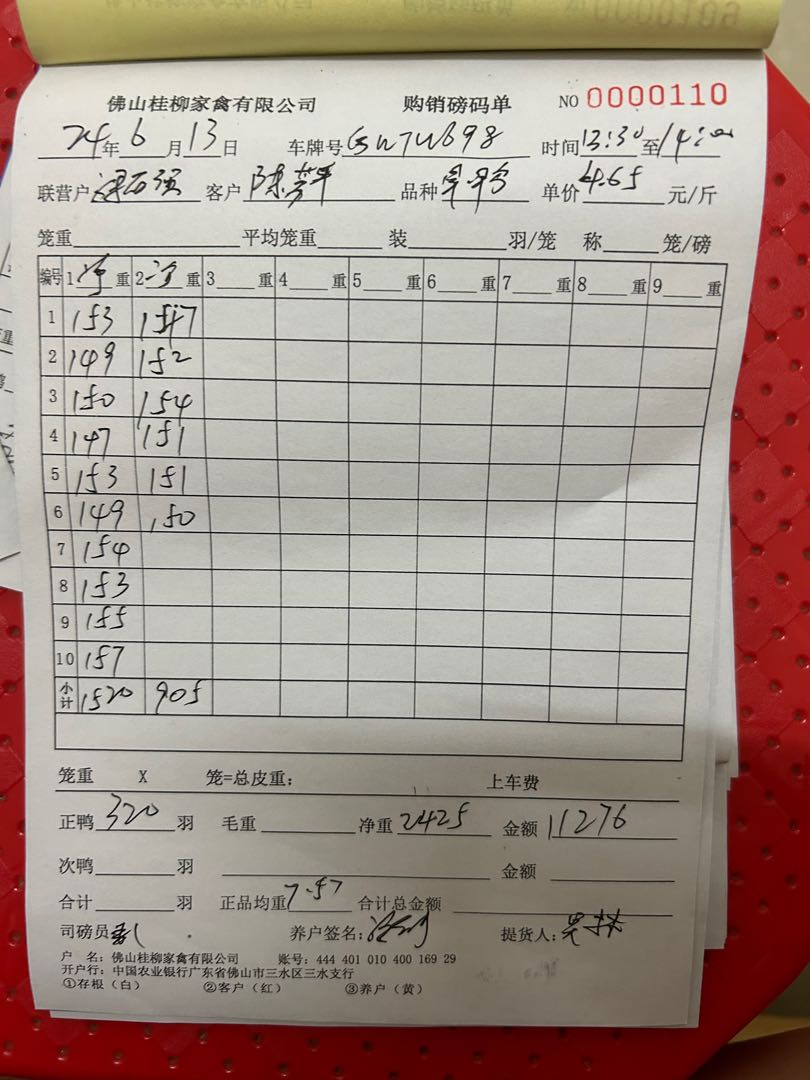 佛山桂柳家禽有限公司 购销磅码单 NO 0000110
24年6月13日 车牌号 时间13:30至14:00
联营户 客户陈芳平 品种 单价4.65元/斤
笼重 平均笼重 装 羽/笼 称 笼/磅
编号 1净重 2净重 3 重 4 重 5 重 6 重 7 重 8 重 9 重
1 153 147
2 149 152
3 150 154
4 147 151
5 153 151
6 149 150
7 154
8 153
9 155
10 157
小计 1520 905
笼重 X 笼=总皮重： 上车费
正鸭320羽 毛重 净重2425 金额11276
次鸭 羽 金额
合计 羽 正品均重7.57 合计总金额
司磅员 养户签名： 提货人：
户 名：佛山桂柳家禽有限公司 账号：444 401 010 400 169 29
开户行：中国农业银行广东省佛山市三水区三水支行
①存根（白） ②客户（红） ③养户（黄）